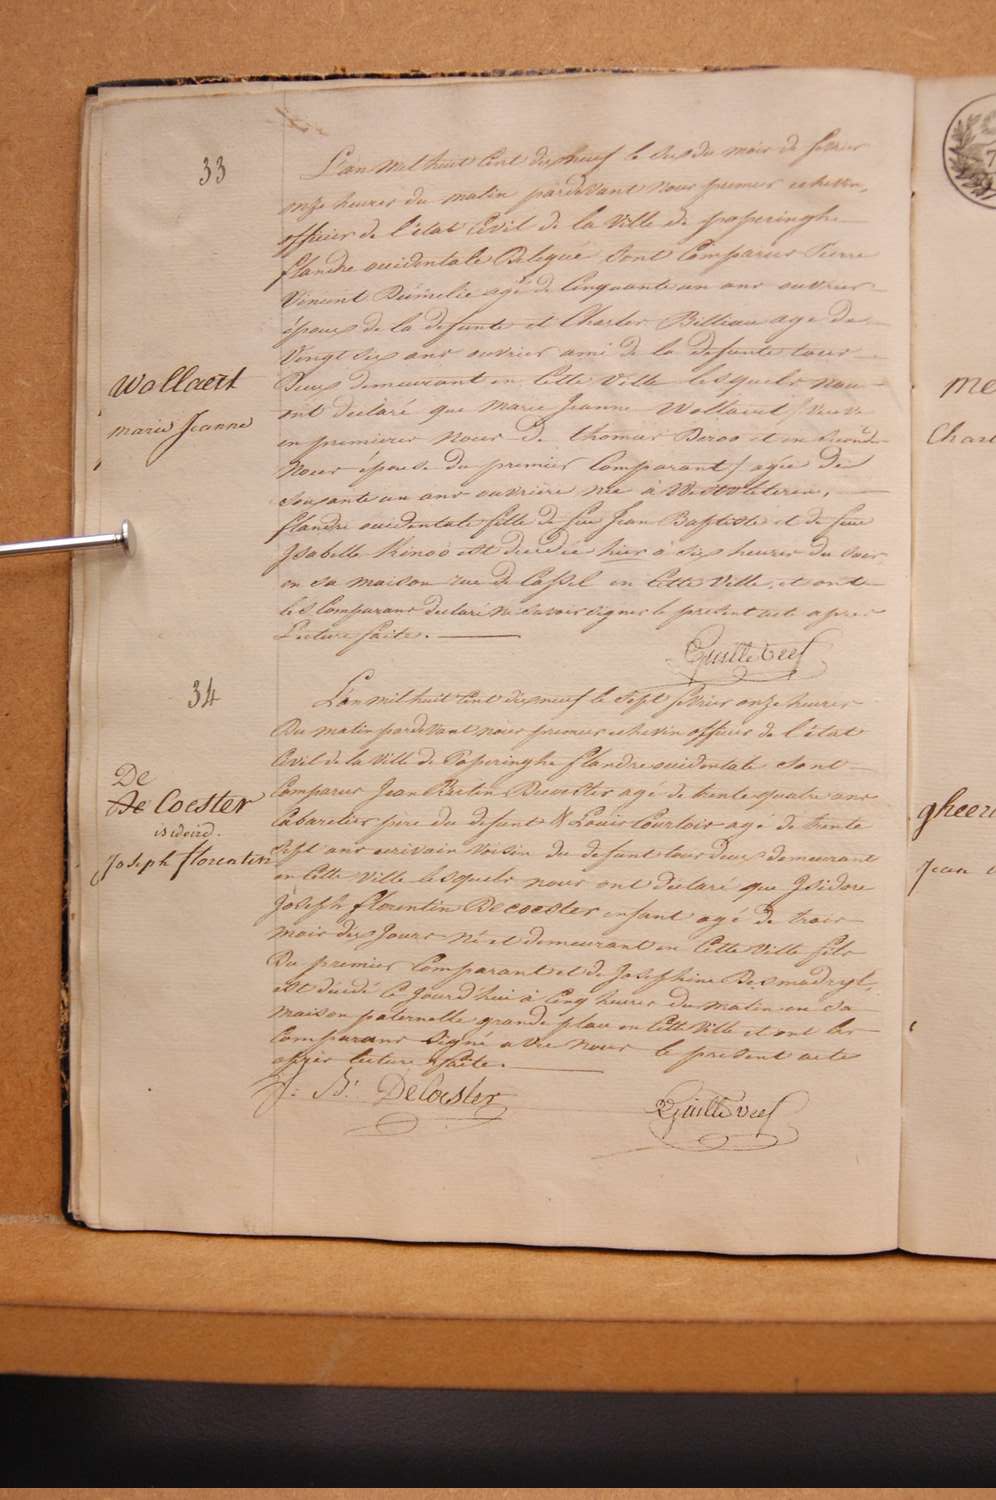 33
L'an mil huit Cent dixneuf le six du mois de fevrier
onze heures du matin pardevant nous premier echevin,
officier de l'état Civil de la Ville de poperinghe
flandre occidentale Belgique Sont Comparus Pierre
Vincent agé de Cinquante un ans ouvrier
époux de la defunte et Charles Billiau age de
Vingt six ans ouvrier ami de la defunte tous
Deux demeurant en Cette Ville lesquels nous
ont declaré que Marie Jeanne Wollaert / Veuve
en premieres Noces de thomas Deroo et en secondes
Noces épouse du premier Comparant / agée de
soixante un ans ouvriere née à Westvleteren,
flandre occidentale fille de feu Jean Baptiste et de feue
Isabelle Kinoo est decedée hier à six heures du soir
en sa maison rue de Cassel en Cette Ville, et ont
les Comparans declaré ne savoir signer le present acte apres
Lecture faite.
Wollaert
marie Jeanne
34
L'an mil huit Cent dixneuf le sept fevrier onze heures
Du matin pardevant nous premier echevin officier de l'état
Civil de la Ville de Poperinghe flandre occidentale sont
Comparus Jean Bertin Decoester age de trente quatre ans
Cabaretier père du defunt & Louis Courtois agé de trente
Sept ans ecrivain Voisin du defunt tous deux demeurant
en Cette Ville lesquels nous ont déclaré que Isidore
Joseph florentin Decoester enfant agé de trois
mois dix Jours né et demeurant en Cette Ville fils
Du premier Comparant et de Josephine Desmadryl,
est décédé Ce Jourd'hui à Cinq heures du matin en sa
maison paternelle grande place en Cette Ville et ont les
Comparans signé avec nous le present acte
apres lecture faite.
De
De Coester
isidore.
Joseph florentin
J: B: DeCoester
Me
Char
gheeri
Jean